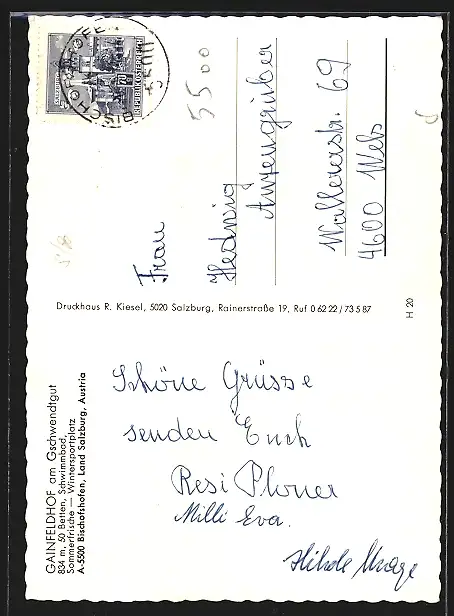 GAINFELDHOF am Gschwendtgut
834 m, 50 Betten, Schwimmbad,
Sommerfrische — Wintersportplatz
A-5500 Bischofshofen, Land Salzburg, Austria
Schöne Grüsse
senden Euch
Resi Ploner
Milli Eva.
Hilde
Druckhaus R. Kiesel, 5020 Salzburg, Rainerstraße 19, Ruf 0 62 22 / 73 5 87
H 20
REPUBLIK ÖSTERREICH
5500
Frau
Hedwig
Anzengruber
Wallererstr. 69
4600 Wels